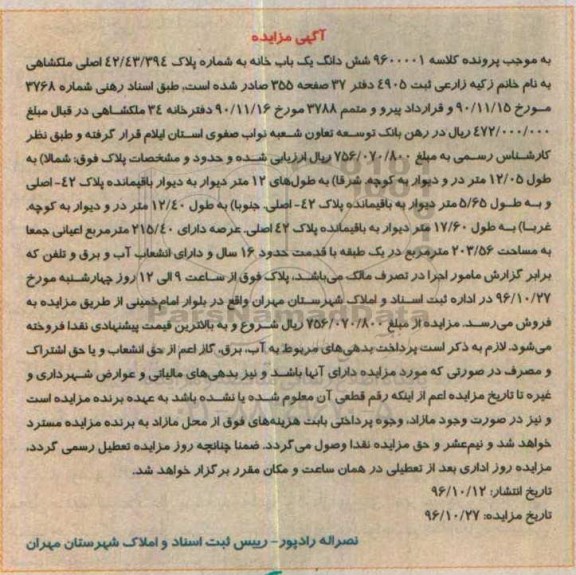 آگهی مزایده
به موجب پرونده کلاسه ۹۶۰۰۰۰۱ شش دانگ یک باب خانه به شماره پلاک ۴۲/۴۳/۳۹۴ اصلی ملکشاهی
به نام خانم زکیه زارعی ثبت ۴۹۰۵ دفتر ۳۷ صفحه ۳۵۵ صادر شده است، طبق اسناد رهنی شماره ۳۷۶۸
مورخ ۹۰/۱۱/۱۵ و قرارداد پیرو و متمم ۳۷۸۸ مورخ ۹۰/۱۱/۱۶ دفترخانه ۳۴ ملکشاهی در قبال مبلغ
۴۷۲/۰۰۰/۰۰۰ ریال در رهن بانک توسعه تعاون شعبه نواب صفوی استان ایلام قرار گرفته و طبق نظر
کارشناس رسمی به مبلغ ۷۵۶/۰۷۰/۸۰۰ ریال ارزیابی شده و حدود و مشخصات پلاک فوق: شمالا) به
طول ۱۲/۰۵ متر در و دیوار به کوچه. شرقا) به طول‌های ۱۲ متر دیوار به دیوار باقیمانده پلاک ۴۲- اصلی
و به طول ۵/۶۵ متر دیوار به باقیمانده پلاک ۴۲- اصلی. جنوبا) به طول ۱۲/۴۰ متر در و دیوار به کوچه.
غربا) به طول ۱۷/۶۰ متر دیوار به باقیمانده پلاک ۴۲ اصلی. عرصه دارای ۲۱۵/۴۰ مترمربع اعیانی جمعا
به مساحت ۲۰۳/۵۶ مترمربع در یک طبقه با قدمت حدود ۱۶ سال و دارای انشعاب آب و برق و تلفن که
برابر گزارش مامور اجرا در تصرف مالک می‌باشد، پلاک فوق از ساعت ۹ الی ۱۲ روز چهارشنبه مورخ
۹۶/۱۰/۲۷ در اداره ثبت اسناد و املاک شهرستان مهران واقع در بلوار امام‌خمینی از طریق مزایده به
فروش می‌رسد. مزایده از مبلغ ۷۵۶/۰۷۰/۸۰۰ ریال شروع و به بالاترین قیمت پیشنهادی نقدا فروخته
می‌شود. لازم به ذکر است پرداخت بدهی‌های مربوط به آب، برق، گاز اعم از حق انشعاب و یا حق اشتراک
و مصرف در صورتی که مورد مزایده دارای آنها باشد و نیز بدهی‌های مالیاتی و عوارض شهرداری و
غیره تا تاریخ مزایده اعم از اینکه رقم قطعی آن معلوم شده یا نشده باشد به عهده برنده مزایده است
و نیز در صورت وجود مازاد، وجوه پرداختی بابت هزینه‌های فوق از محل مازاد به برنده مزایده مسترد
خواهد شد و نیم‌عشر و حق مزایده نقدا وصول می‌گردد. ضمنا چنانچه روز مزایده تعطیل رسمی گردد،
مزایده روز اداری بعد از تعطیلی در همان ساعت و مکان مقرر برگزار خواهد شد.
تاریخ انتشار: ۹۶/۱۰/۱۲
تاریخ مزایده: ۹۶/۱۰/۲۷
نصراله رادپور - رییس ثبت اسناد و املاک شهرستان مهران